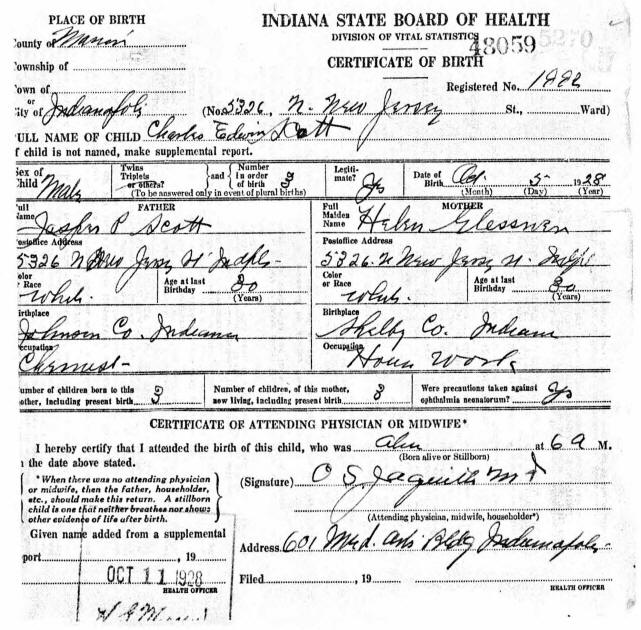 PLACE OF BIRTH
INDIANA STATE BOARD OF HEALTH
DIVISION OF VITAL STATISTICS
48059 5270
County of Marion
CERTIFICATE OF BIRTH
Township of
Registered No.
Town of
or
City of Indianapolis (No. 5326, N. New Jersey St., Ward)
FULL NAME OF CHILD Charles Edwin Scott
If child is not named, make supplemental report.
Sex of Child Male
Twins Triplets or others? and Number in order of birth 3
(To be answered only in event of plural births)
Legitimate? Yes
Date of Birth Oct. 5 1928
(Month) (Day) (Year)
FATHER
Full Name Jasper P Scott
Postoffice Address
5326 N New Jersey St Indpls
Color or Race White.
Age at last Birthday 30
(Years)
Birthplace
Johnson Co. Indiana
Occupation
Chemist
MOTHER
Full Maiden Name Helen Glessner
Postoffice Address
5326. N New Jersey St. Indpls
Color or Race White.
Age at last Birthday 30
(Years)
Birthplace
Shelby Co. Indiana
Occupation House Work
Number of children born to this mother, including present birth 3
Number of children, of this mother, now living, including present birth 3
Were precautions taken against ophthalmia neonatorum? Yes
CERTIFICATE OF ATTENDING PHYSICIAN OR MIDWIFE*
I hereby certify that I attended the birth of this child, who was alive at 6 A M.
(Born alive or Stillborn)
on the date above stated.
*When there was no attending physician
or midwife, then the father, householder,
etc., should make this return. A stillborn
child is one that neither breathes nor shows
other evidence of life after birth.
(Signature) O S Jaquith M D
(Attending physician, midwife, householder*)
Given name added from a supplemental
report , 19
Address 601 Med. Arts Bldg Indianapolis
OCT 11 1928
HEALTH OFFICER
Filed , 19
HEALTH OFFICER